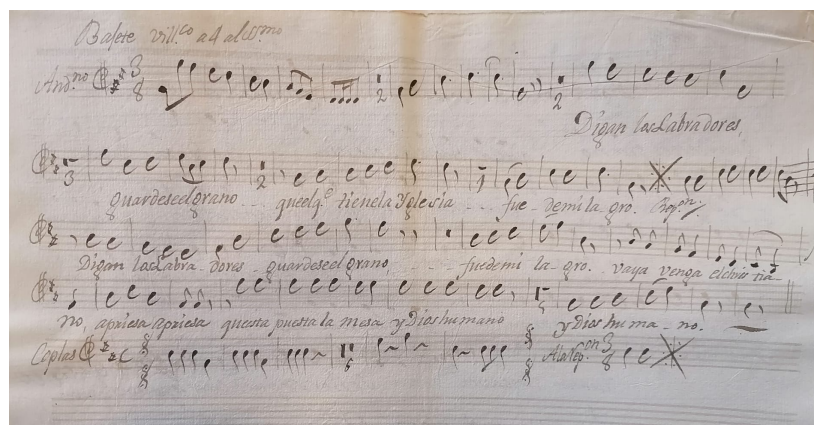 Baſete Vill.co a 4 al SS.mo
And.no 3 8 2 2
Digan los Labradores,
3 2 1
guardese el grano queel q.e tiene la Yglesia fue demi la gro. Resp.on
Digan los Labra-dores guardese el grano fuedemi la-gro. vaya venga el chris tia-
no, apriesa apriesa questa puesta la mesa y Dios humano y Dios hu ma-no.
Coplas C 6 Alа Resp.on 3 8